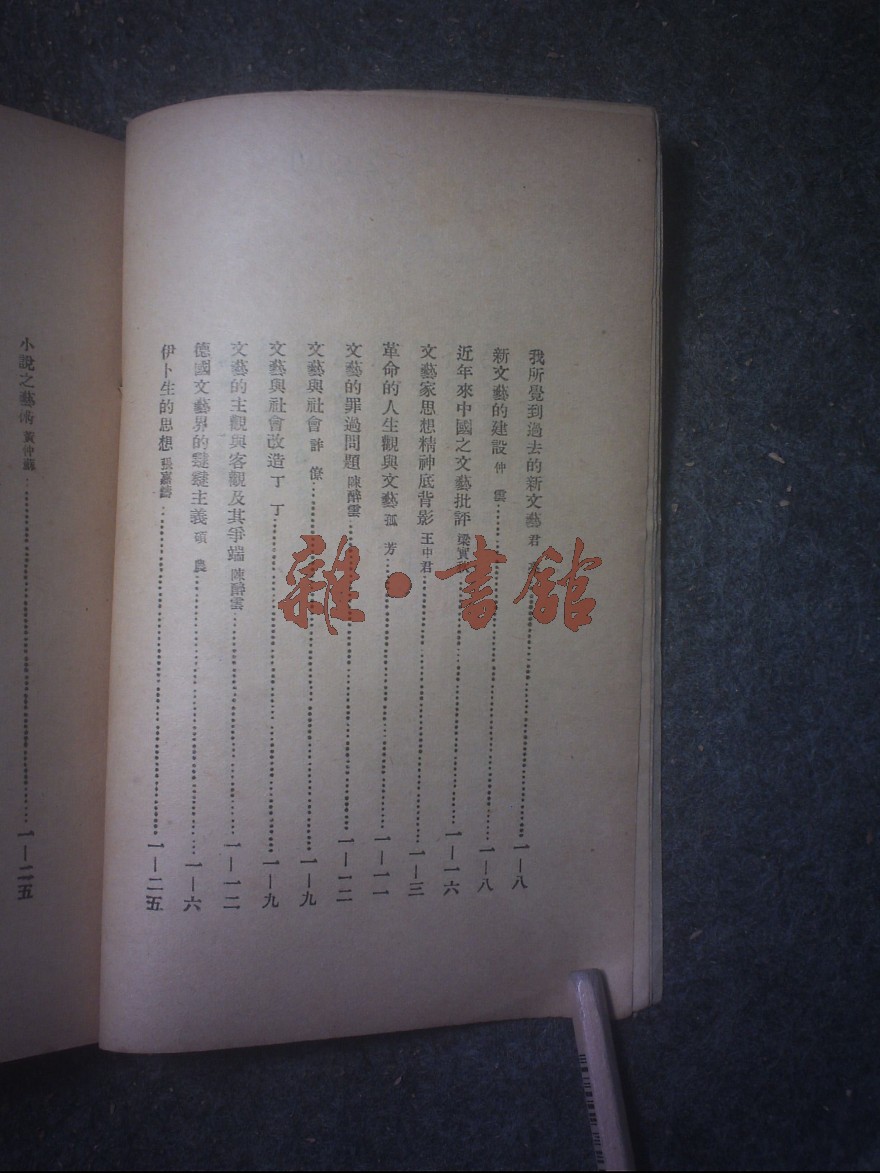 我所覺到過去的新文藝 君……一—八
新文藝的建設 仲 雲……一—八
近年來中國之文藝批評 梁實……一—一六
文藝家思想精神底背影 王中君……一—三
革命的人生觀與文藝 孤 芳……一—一一
文藝的罪過問題 陳醉雲……一—一二
文藝與社會 許 僚……一—九
文藝與社會改造 丁 丁……一—九
文藝的主觀與客觀及其爭端 陳醉雲……一—一二
德國文藝界的韃韃主義 碩 農……一—六
伊卜生的思想 張嘉鑄……一—二五
小說之藝術 黃仲蘇……一—二五
雜·書館